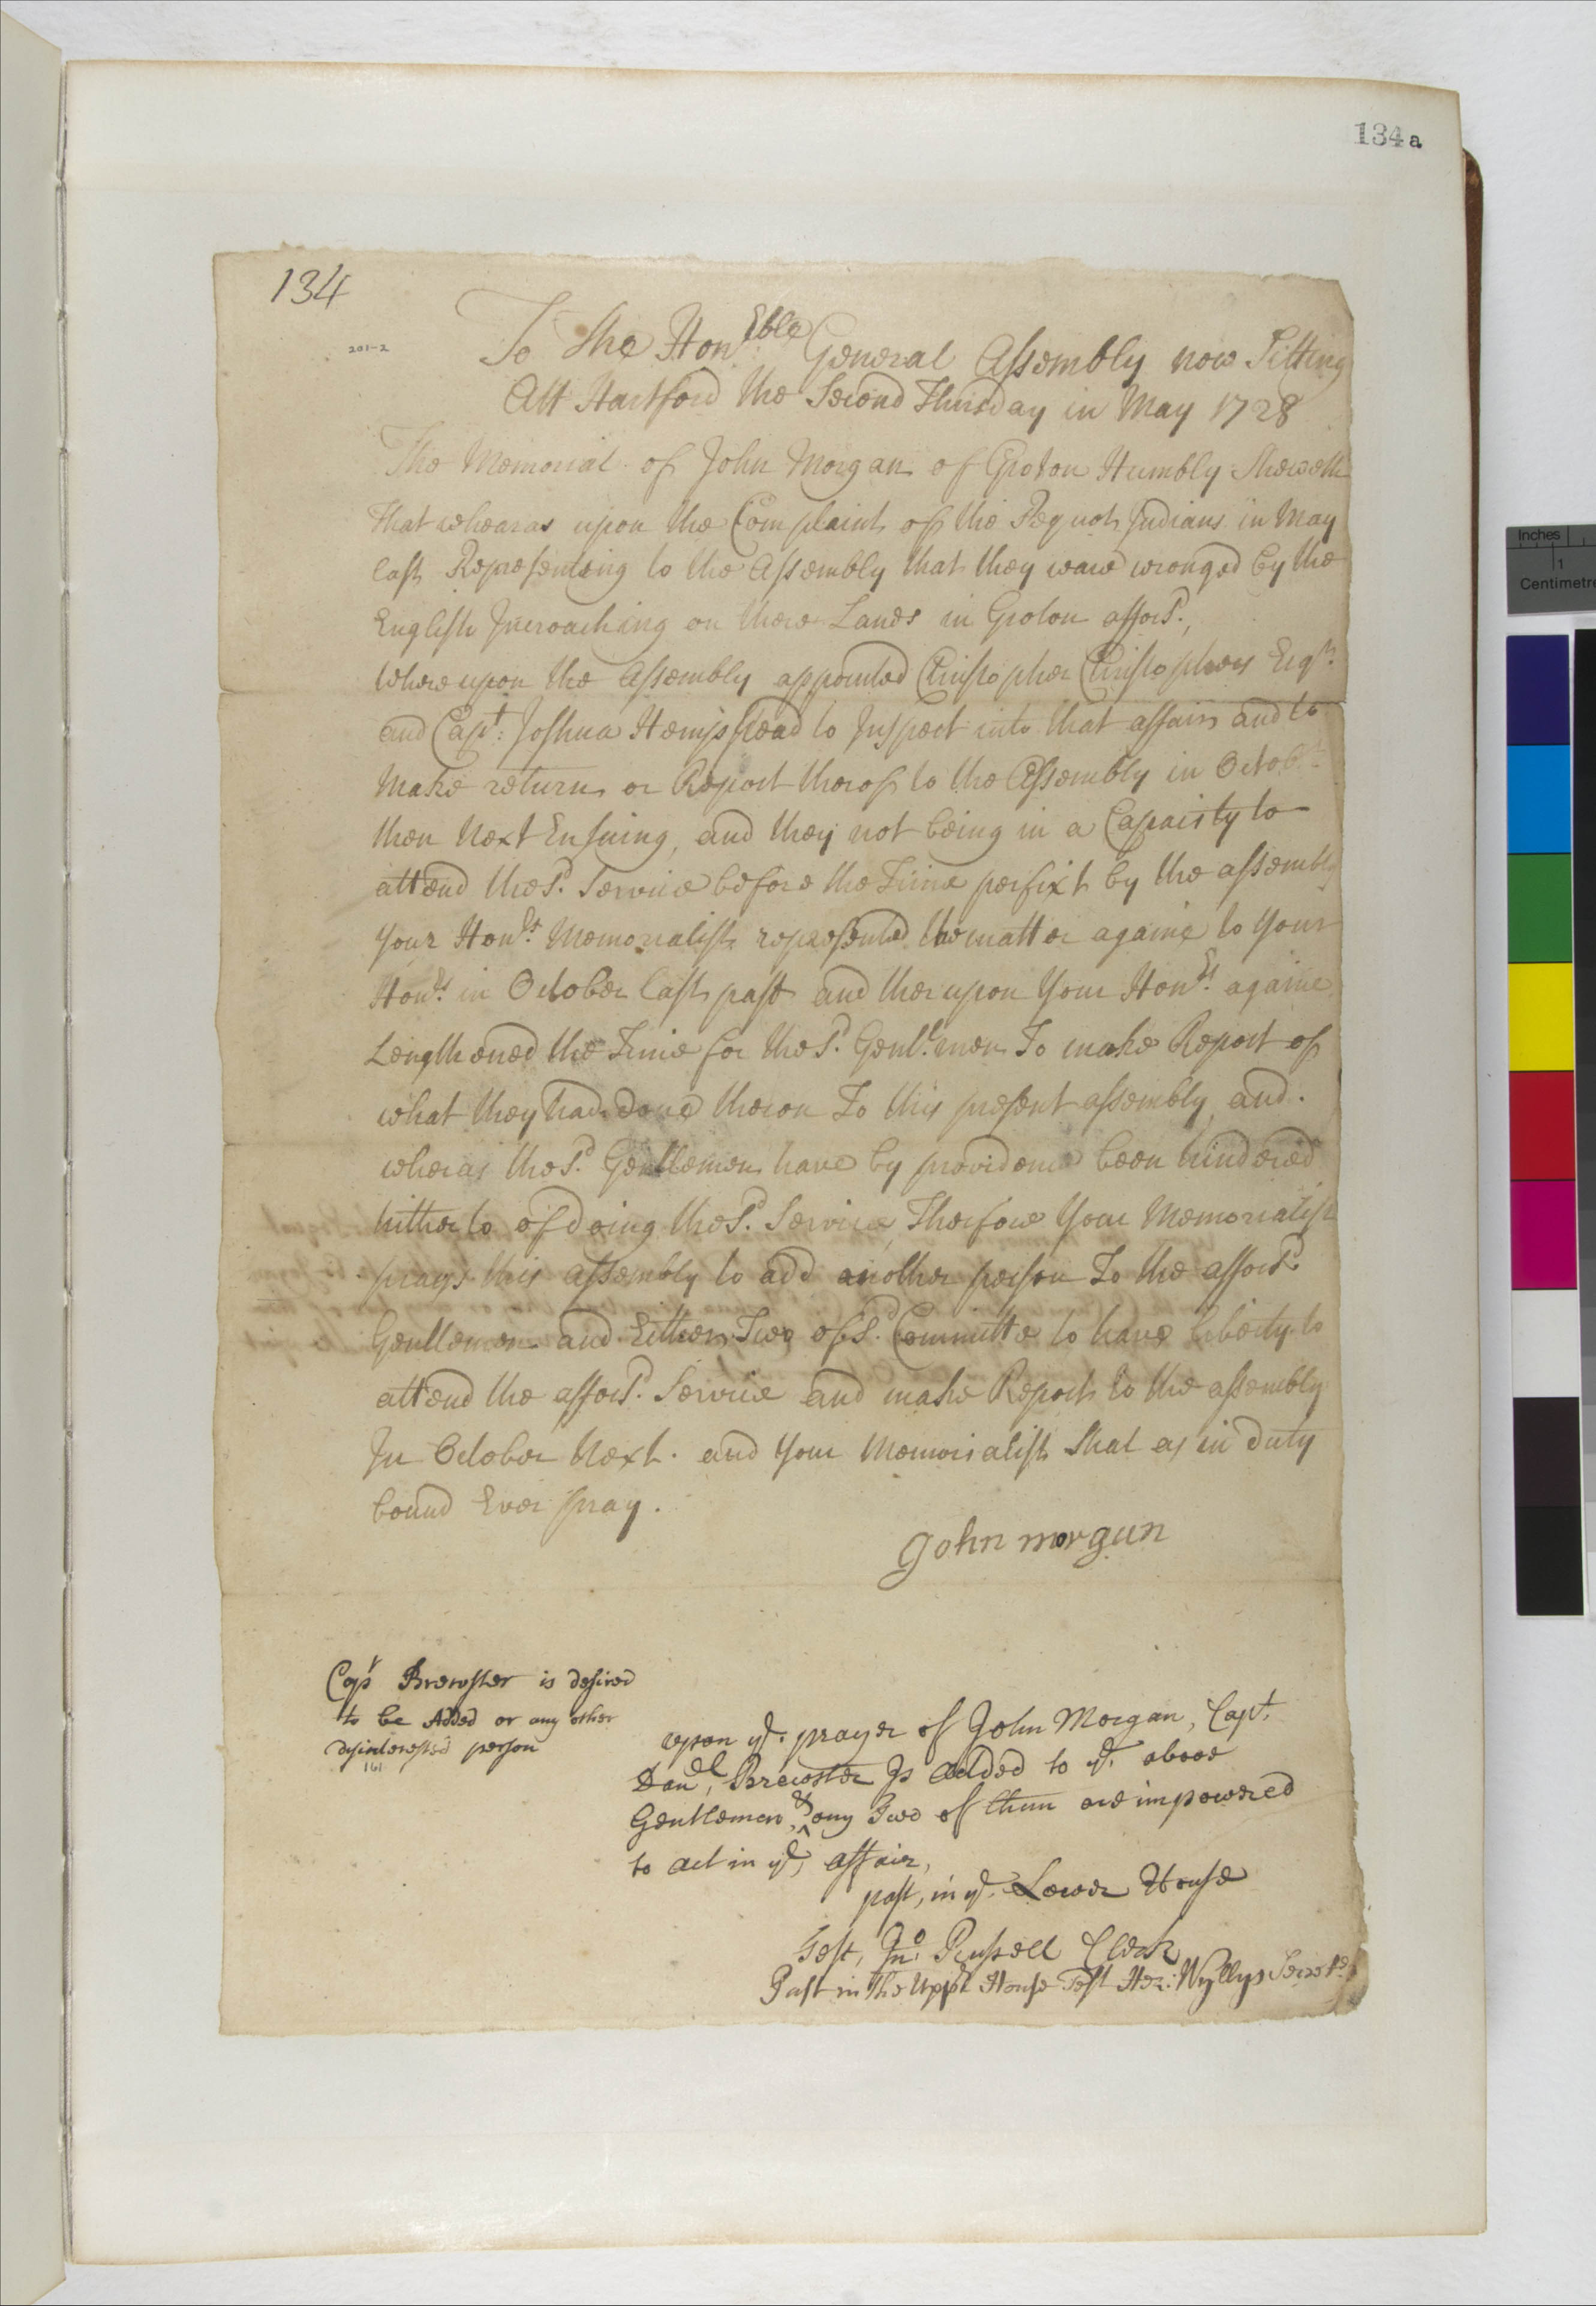 134a
134
201-2
To the Hon.ble General Assembly now Sitting
Att Hartford the Second Thursday in May 1728
The Memorial of John Morgan of Groton Humbly Sheweth
That wheareas upon the Complaint of the Pequot Indians in May
last Represenleing to the Assembly that they ware wronged by the
English Incroaching on there Lands in Groton affors.d,
Whereupon the Assembly appointed Christopher Christophers Esq.r
and Capt: Joshua Hempstead to Inspect into that affair and to
make return or Report therof to the Assembly in Octob.r
then Next Ensuing, and they not being in a Capaisty to
attend the s.d Service before the Time perfixt by the assembly
your Hon.rs Memorialist represented the matter againe to your
Hon.rs in October last past and therupon your Hon.rs againe
Lengthened the Time for the s.d Gentl.men To make Report of
what they had done theron To this present assembly and.
wheras the s.d Gentlemen have by providence been hindered
hitherto of doing the s.d Service, Therfore your Memorialist
prays this assembly to add another person To the affors.d
Gentlemen and Either Two of s.d Committe to have liberty to
attend the affors.d Service and make Report to the assembly
In October Next. and your Memorialist Shal as in duty
bound Ever pray.
John morgan
Capt Brewster is desired
to be Added or any other
disinterested person
161
upon ye. prayer of John Morgan, Capt.
Dan.ll, Brewster Is added to ye. above
Gentlemen, & any Two of them are impowered
to act in ye, affair,
past, in ye. Lower House
Test, Jno. Russell Clerk
Past in the Upper House Test Hez: Wyllys Secret.